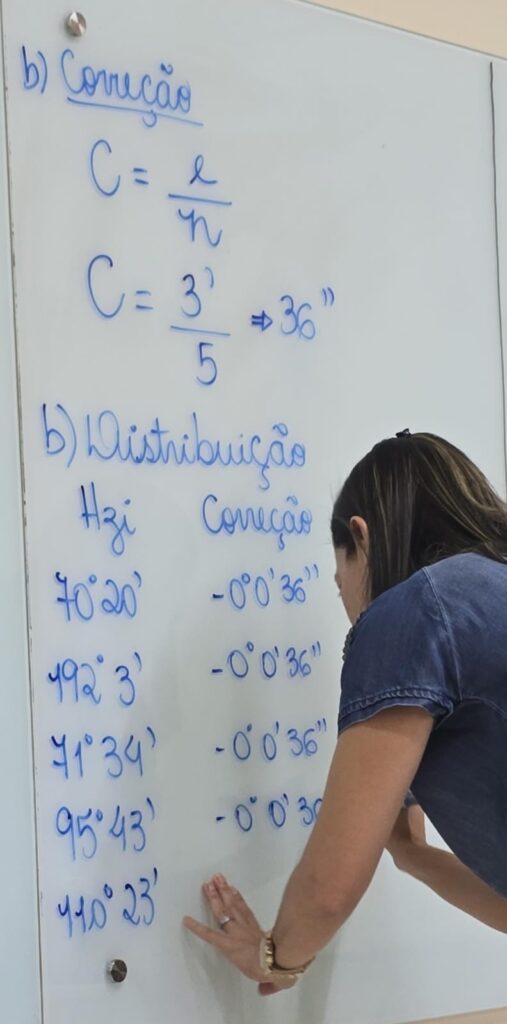 b) Correção
C = e/n
C = 3'/5 ⇒ 36"
b) Distribuição
Hzi Correção
70°20' -0°0'36"
192°3' -0°0'36"
71°34' -0°0'36"
95°43' -0°0'36
110°23'